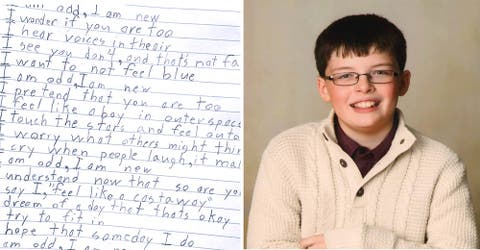 add, I am new
I wonder if you are too
hear voices in the air
I see you don't, and that's not fa
want to not feel blue
am odd, I am new
pretend that you are too
feel like a boy in outerspace
touch the stars and feel out o
worry what others might thin
cry when people laugh, it mak
am odd, I am new
understand now that so are yo
say I, "feel like a castaway"
dream of a day that thats okay
try to fit in
hope that someday I do
am odd, I am new